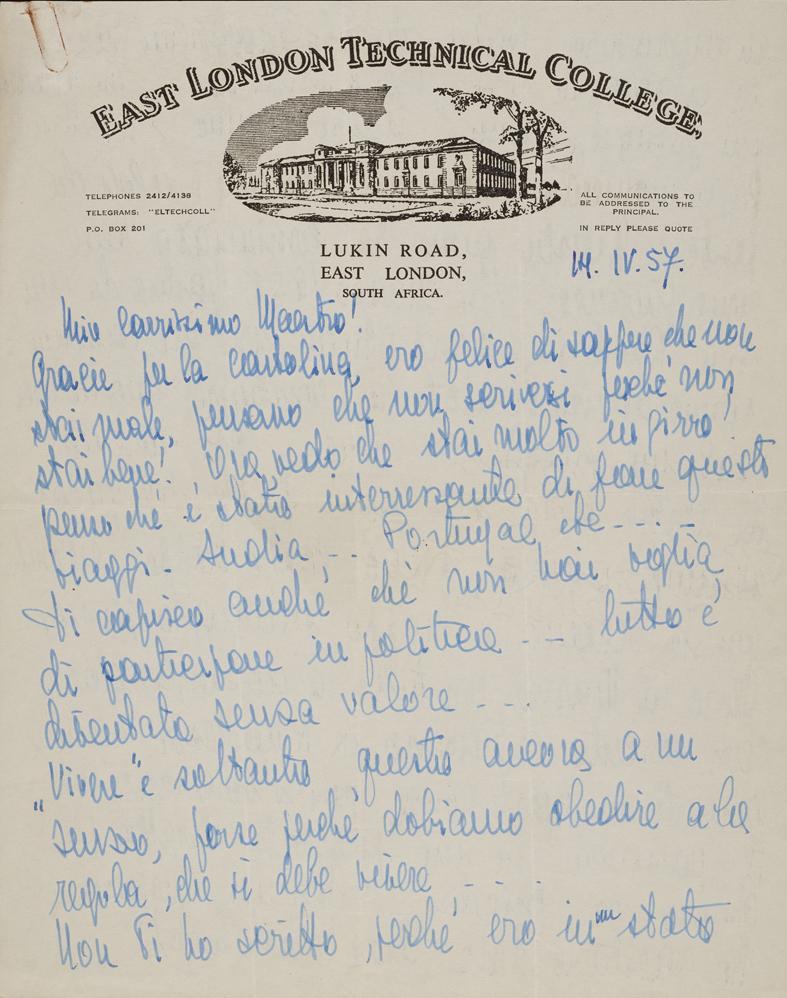 EAST LONDON TECHNICAL COLLEGE,
TELEPHONES 2412/4136
TELEGRAMS: "ELTECHCOLL"
P.O. BOX 201
ALL COMMUNICATIONS TO
BE ADDRESSED TO THE
PRINCIPAL.
IN REPLY PLEASE QUOTE
LUKIN ROAD,
EAST LONDON,
SOUTH AFRICA.
14. IV. 57.
Mio carrissimo Maestro!
Gracie per la cartolina, ero felice di sappere che non
stai male, pensano che non scrivesi perché non
stai bene! Ora vedo che stai molto in girro!
penso che é stato interressante di fare questi
viaggi - Audia, -- Portugal, etc ----
Ti capisco anche che non hai voglia
di participare in politica -- tutto é
diventato senza valore ---
"Vivere" e soltanto questo ancora a un
senso, forse perché dobiamo obedire a la
regola, che si debe vivere, ---
Non Ti ho scritto, perché ero in un stato